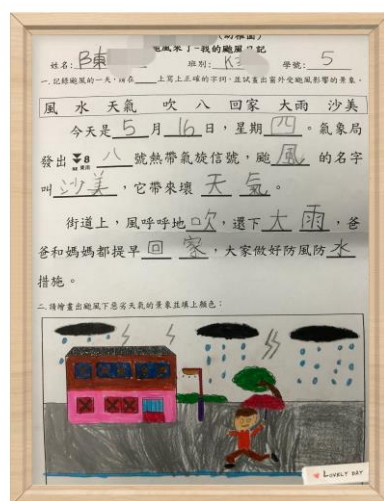 (幼稚園)
颱風來了-我的颱風日記
姓名：陳 班別：K3 學號：5
一.記錄颱風的一天，請在＿＿上寫上正確的字詞，並試畫出窗外受颱風影響的景象。
風 水 天氣 吹 八 回家 大雨 沙美
今天是 5 月 16 日，星期 四 。氣象局
發出 8 八 號熱帶氣旋信號，颱 風 的名字
叫 沙美 ，它帶來壞 天 氣 。
街道上，風呼呼地 吹 ，還下 大 雨 ，爸
爸和媽媽都提早 回 家 ，大家做好防風防 水
措施。
二.請繪畫出颱風下惡劣天氣的景象並填上顏色：
LOVELY DAY